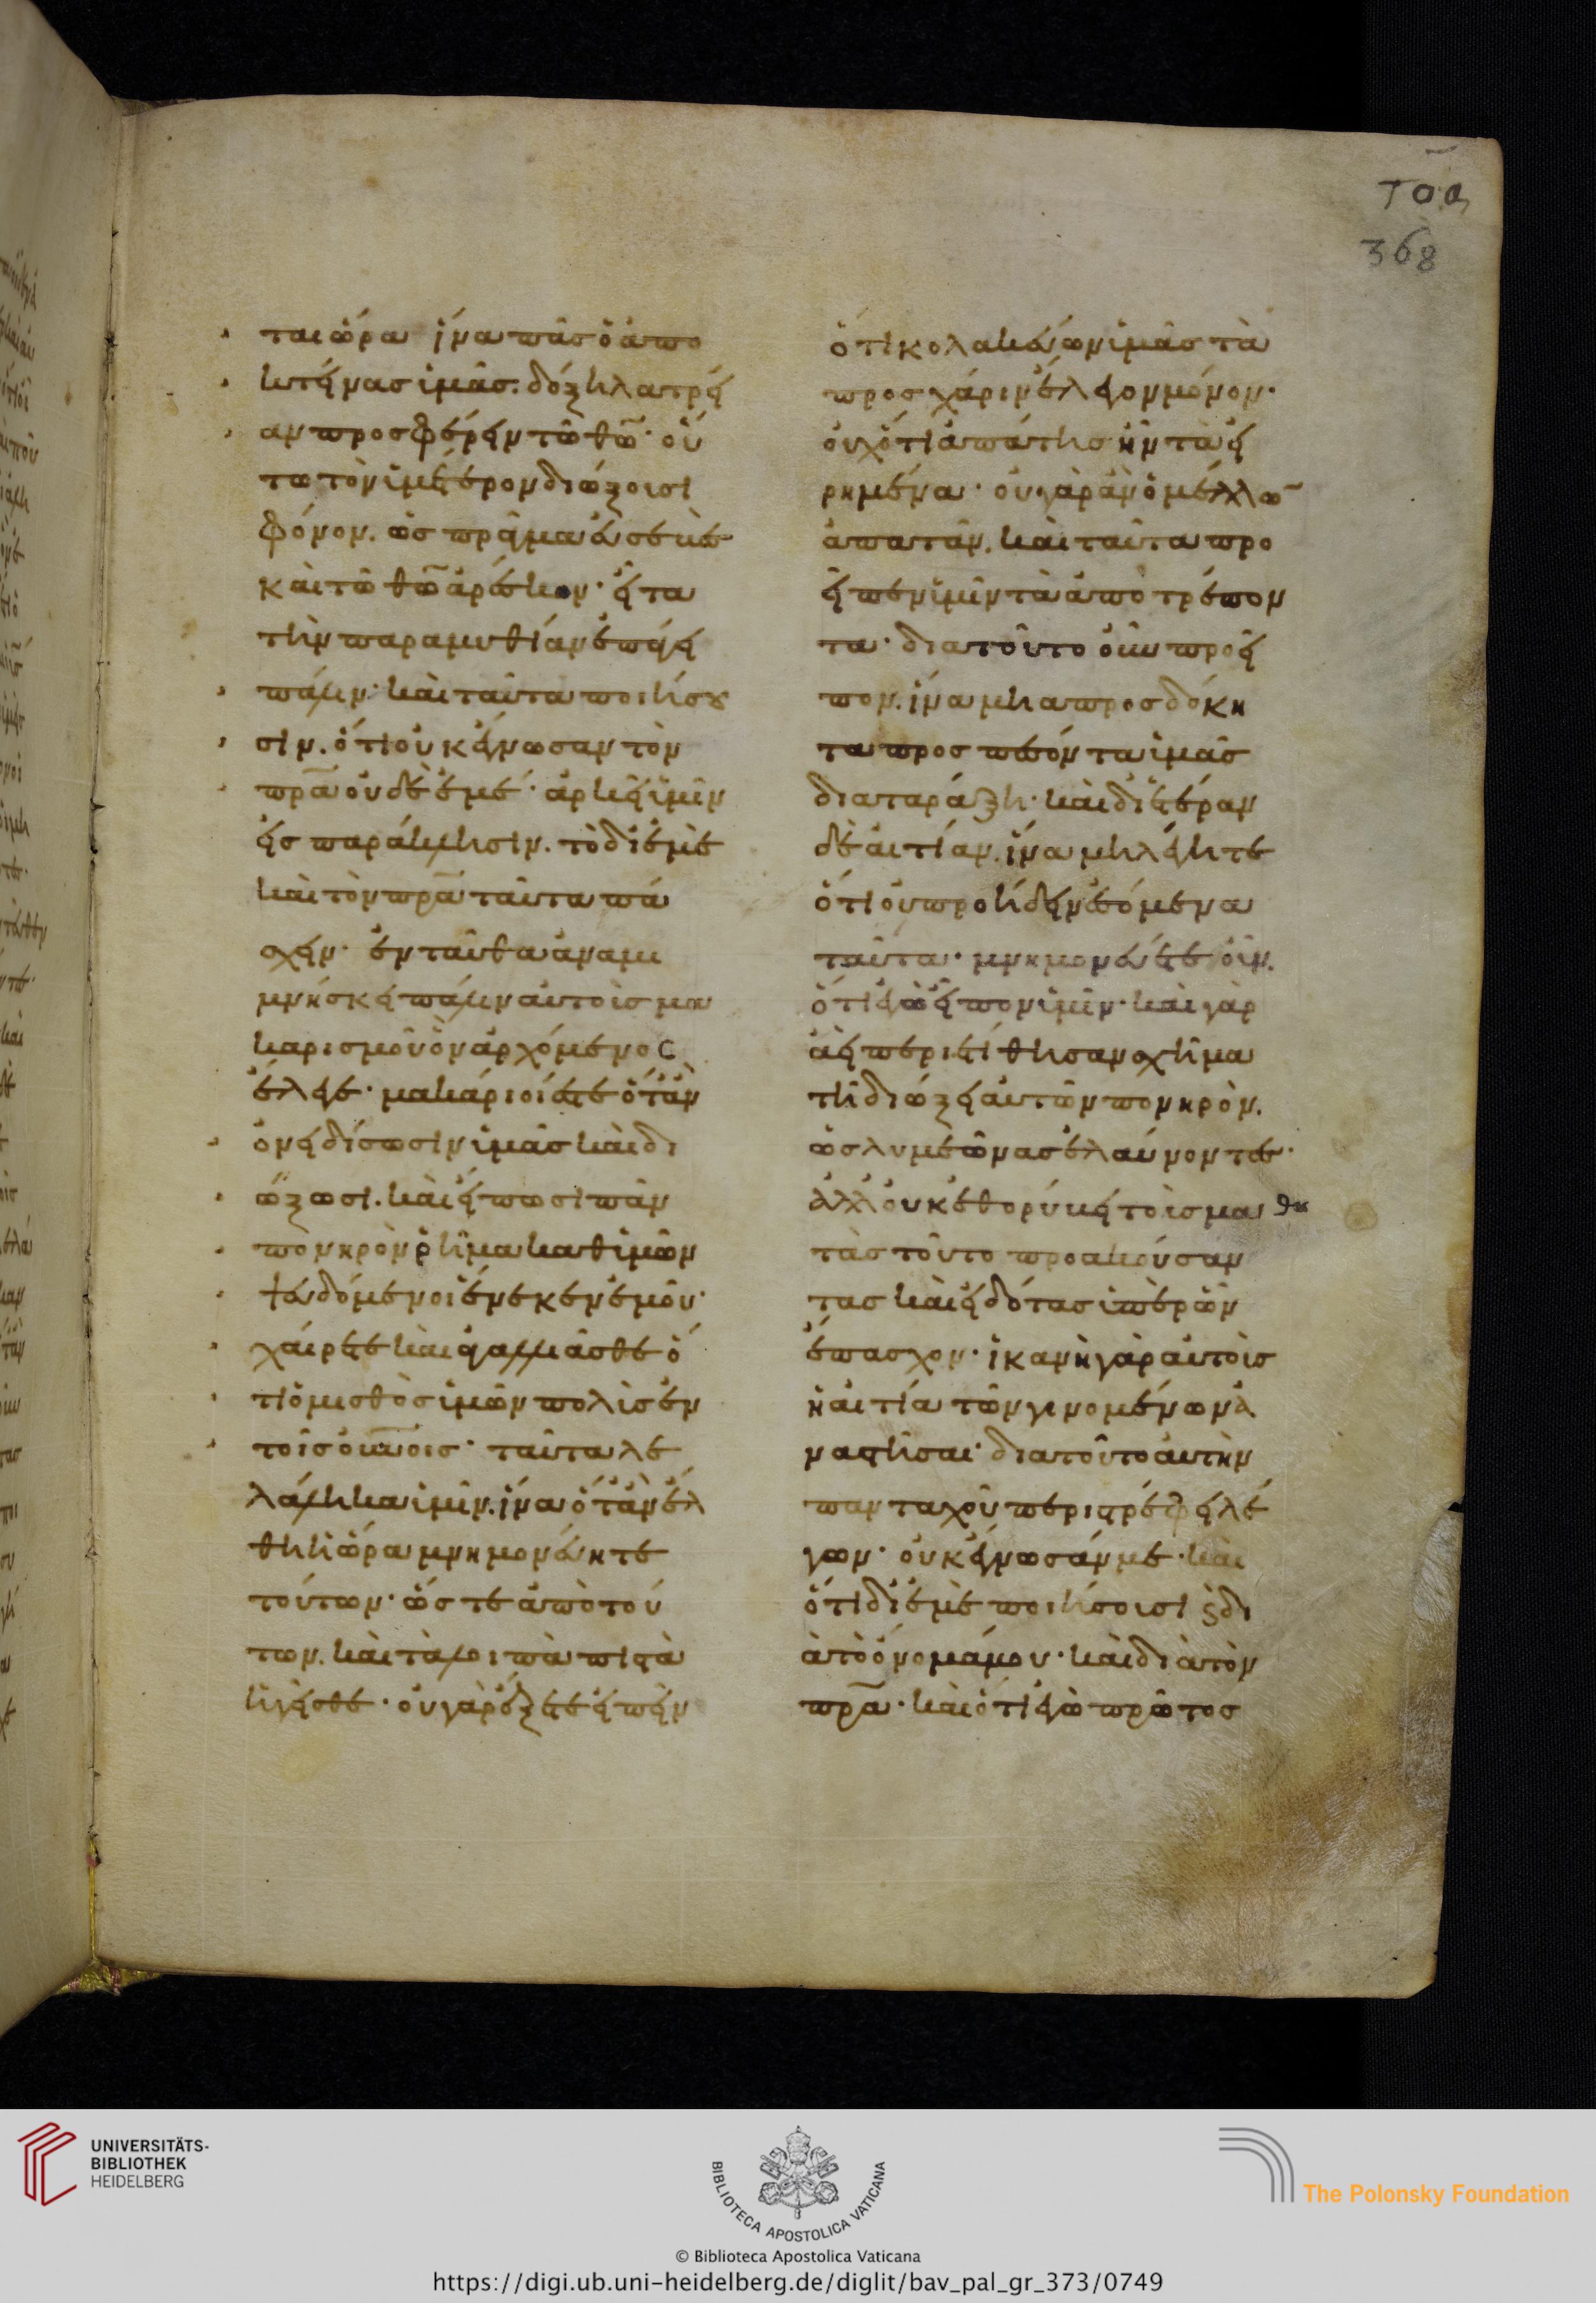 τοα
368
ται ὥρα ἵνα πᾶς ὁ ἀπο
κτείνας ὑμᾶς. δόξη λατρεί
αν προσφέρειν τῶ θω̅· οὕ
τω τὸν ὑμέτερον διώξουσι
φόνον. ὡς πρᾶγμα εὐσεβὲσ
καὶ τῶ θω̅ ἀρέσκον· εἶτα
τὴν παραμυθίαν ἐπάγει
πάλιν· καὶ ταῦτα ποιήσου
σιν. ὅτι οὐκ ἔγνωσαν τὸν
πρ̅α οὐδὲ ἐμέ· ἀρκεῖ ὑμῖν
εἰς παράκλησιν. τὸ δι' ἐμὲ
καὶ τὸν πρ̅α ταῦτα πά
σχειν· ἐνταῦθα ἀναμι
μνήσκει πάλιν αὐτοὺς μα
καρισμοῦ ὃν ἀρχόμενος
ἔλεγε· μακάριοί ἐστε ὅταν
ὀνειδίσωσιν ὑμᾶς καὶ δι
ώξωσι. καὶ εἴπωσι πᾶν
πονηρὸν ῥῆμα καθ' ὑμῶν
ψευδόμενοι ἕνεκεν ἐμοῦ·
χαίρετε καὶ ἀγαλλιᾶσθε ὅ
τι ὁ μισθὸς ὑμῶν πολὺς ἐν
τοῖς οὐνοῖς· ταῦτα λε
λάληκα ὑμῖν. ἵνα ὅταν ἔλ
θη ἡ ὥρα μνημονεύητε
τούτων· ὥστε ἀπὸ τού
των. καὶ τὰ λοιπὰ πιστὰ
ἡγεῖσθε· οὐ γὰρ ἕξετε εἰπεῖν
ὅτι κολακεύων ὑμᾶς τὰ
προς χάριν ἔλεγον μόνον·
οὐχ ὅτι ἀπάτης ἦν τὰ εἰ
ρημένα· οὐ γὰρ ἂν ὁ μέλλω̅
ἀπατᾶν. καὶ ταῦτα προ
εῖπεν ὑμῖν τὰ ἀποτρέπον
τα· διατοῦτο οὖν προεῖ
πον. ἵνα μὴ ἀπροσδόκη
τα προσπεσόντα ὑμᾶς
διαταράξη· καὶ δι' ἑτέραν
δὲ αἰτίαν. ἵνα μὴ λέγητε
ὅτι οὐ προήδειν ἐσόμενα
ταῦτα· μνημονεύετε οὖν.
ὅτι ἐγὼ εἶπον ὑμῖν· καὶ γὰρ
ἀεὶ περιετίθησαν σχῆμα
τῆ διώξει αὐτῶν πονηρὸν.
ὡς λυμεῶνας ἐλαύνοντες·
ἀλλ' οὐκ ἐθορύβει τοὺς μαθη
τὰς τοῦτο προακούσαν
τας καὶ εἰδότας ὑπὲρ ὧν
ἔπασχον· ἱκανὴ γὰρ αὐτοὺς
ἡ αἰτία τῶν γινομένων ἀ
ναστῆσαι· διατοῦτο αὐτὴν
πανταχοῦ περιστρέφει λέ
γων· οὐκ ἔγνωσάν με· καὶ
ὅτι δι' ἐμὲ ποιήσουσι ϗ δι
ὰ τὸ ὄνομά μου· καὶ διὰ τὸν
πρ̅α· καὶ ὅτι ἐγὼ πρῶτος
UNIVERSITÄTS-
BIBLIOTHEK
HEIDELBERG
BIBLIOTECA APOSTOLICA VATICANA
The Polonsky Foundation
© Biblioteca Apostolica Vaticana
https://digi.ub.uni-heidelberg.de/diglit/bav_pal_gr_373/0749